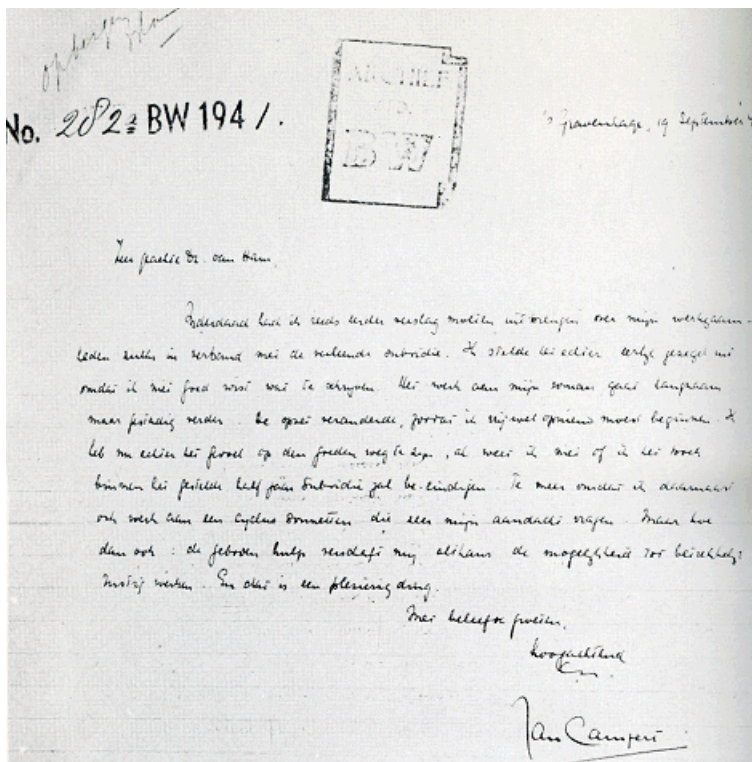 opbergen
No. 282 BW 1941.
ARCHIEF
BW
's Gravenhage, 19 September
Zeer geachte Dr. van Ham,
Inderdaad had ik reeds eerder verslag moeten uitbrengen over mijn werkzaam-
heden zulks in verband met de verleende subsidie. Ik stelde het echter eerlijk gezegd uit
omdat ik niet goed wist wat te schrijven. Het werk aan mijn roman gaat langzaam
maar gestadig verder. De opzet veranderde, zoodat ik vrijwel opnieuw moest beginnen. Ik
heb nu echter het gevoel op den goeden weg te zijn, al weet ik niet of ik het werk
binnen het gestelde half jaar subsidie zal be-eindigen. Te meer omdat ik daarnaast
ook werk aan een cyclus sonnetten die zeer mijn aandacht vragen. Maar hoe
dan ook: de geboden hulp verschaft mij althans de mogelijkheid tot betrekkelijk
rustig werken. En dat is een plezierig ding.
Met beleefde groeten,
hoogachtend
Jan Campert